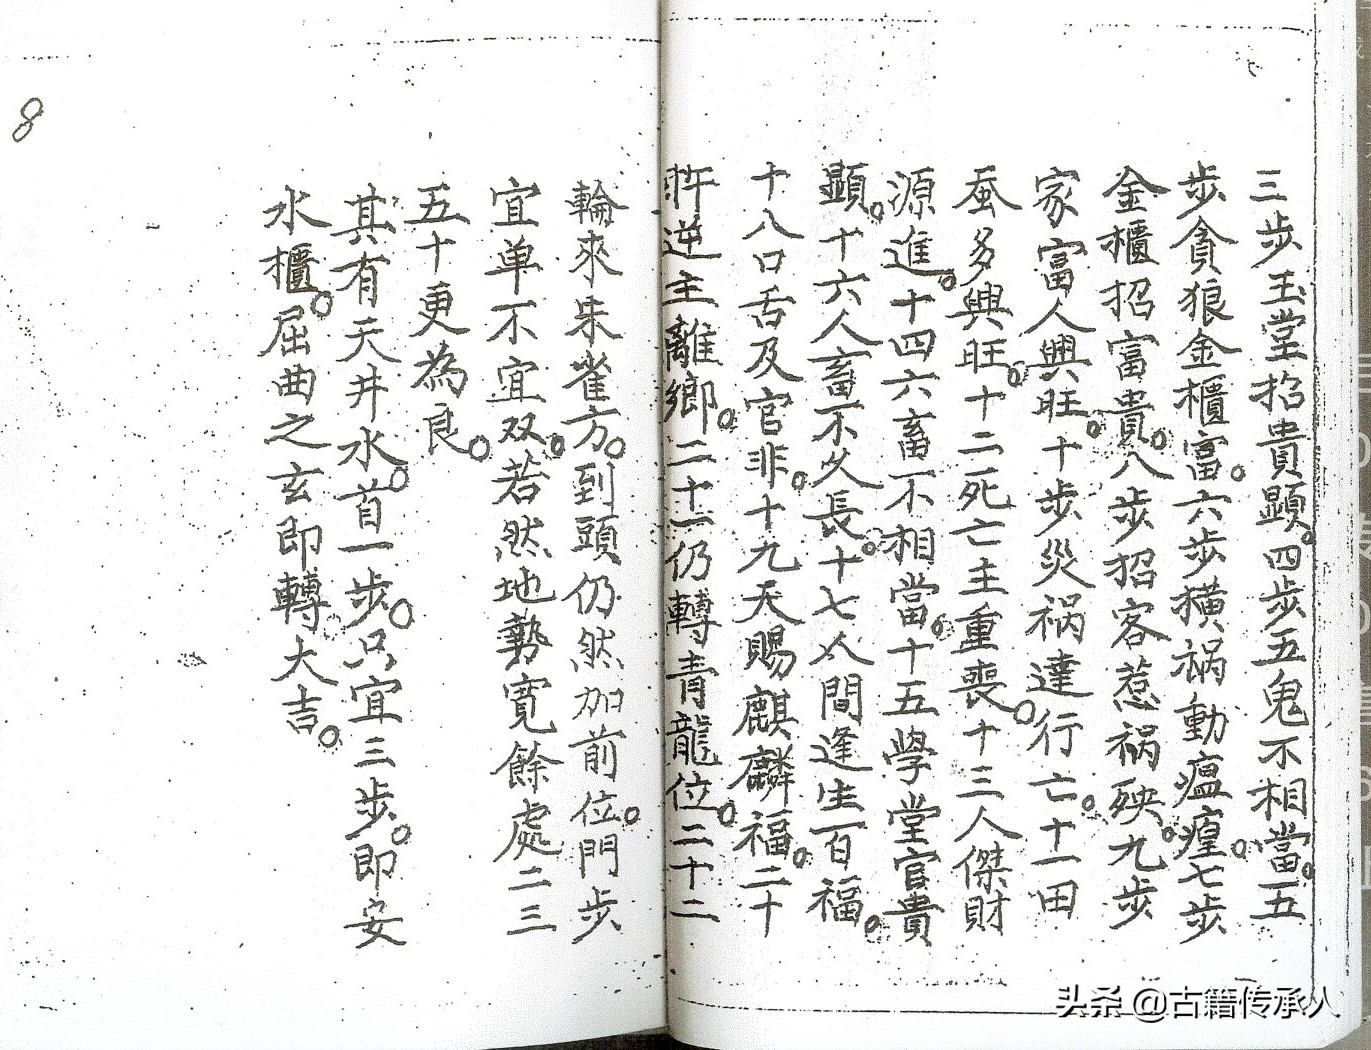 三步玉堂招貴顯。四步五鬼不相當。五
步貪狼金櫃富。六步橫禍動瘟㾮。七步
金櫃招富貴。八步招客惹禍殃。九步
家富人興旺。十步災禍達行亡。十一田
蚕多興旺。十二死亡主重喪。十三人傑財
源進。十四六畜不相當。十五學堂官貴
顯。十六人畜不久長。十七人間逢生百福。
十八口舌及官非。十九天賜麒麟福。二十
忤逆主離鄉。二十一仍轉青龍位。二十二
輪來朱雀方。到頭仍然加前位。門步
宜单不宜双。若然地勢寬餘處二三
五十更為良。
其有天井水。首一步。只宜三步。即安
水櫃。屈曲之玄即轉大吉。
8
头条 @古籍传承人